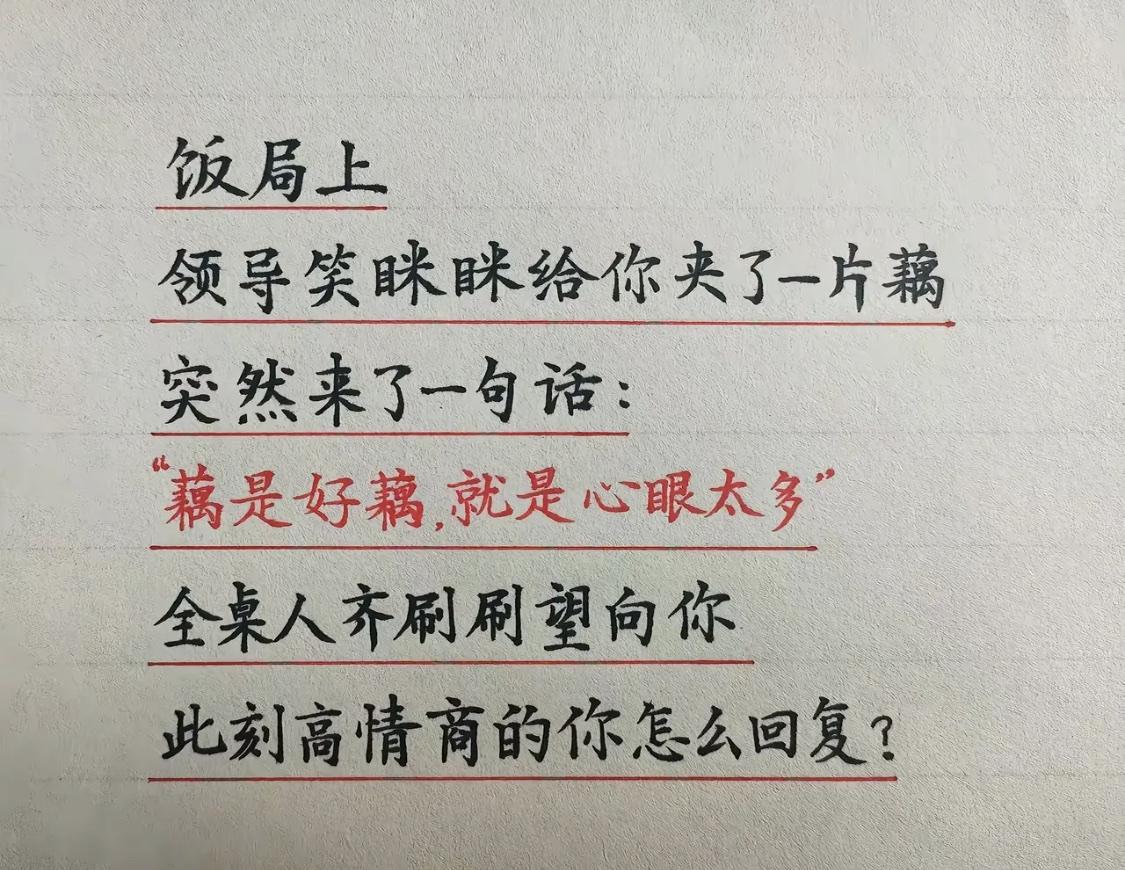 饭局上
领导笑眯眯给你夹了一片藕
突然来了一句话：
“藕是好藕，就是心眼太多”
全桌人齐刷刷望向你
此刻高情商的你怎么回复？